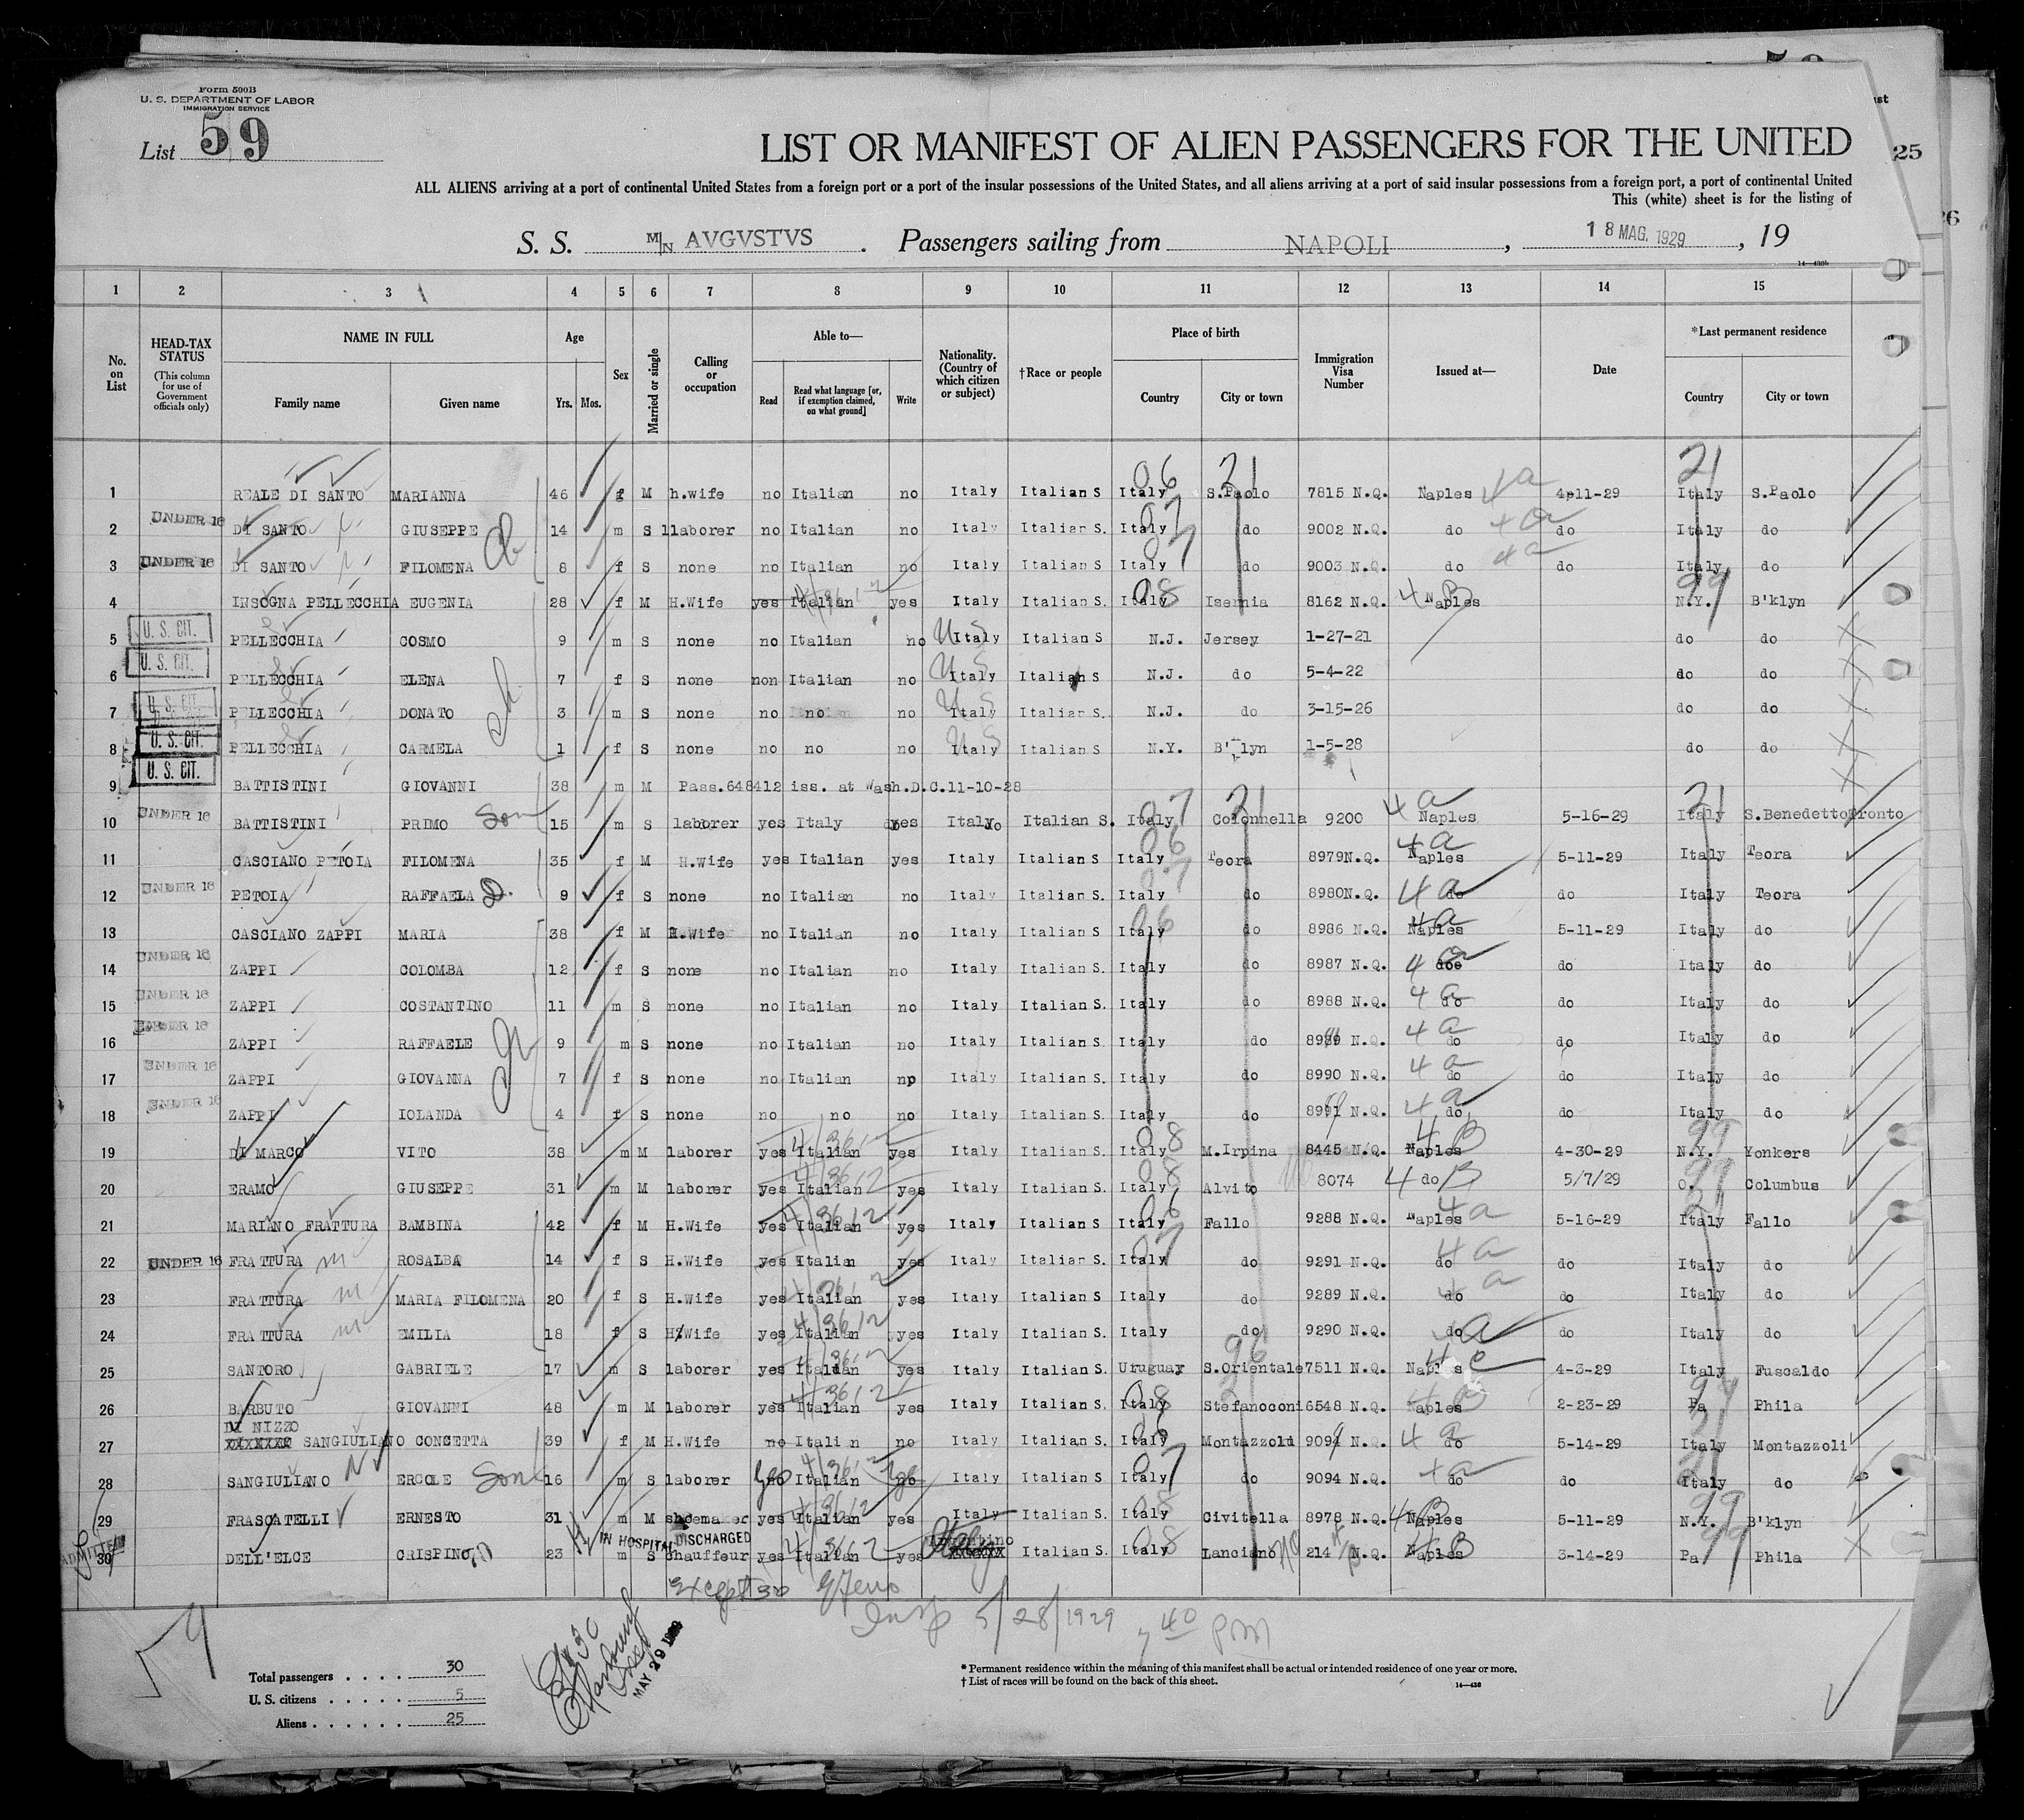 Form 500B
U. S. DEPARTMENT OF LABOR
IMMIGRATION SERVICE
List 59
LIST OR MANIFEST OF ALIEN PASSENGERS FOR THE UNITED
ALL ALIENS arriving at a port of continental United States from a foreign port or a port of the insular possessions of the United States, and all aliens arriving at a port of said insular possessions from a foreign port, a port of continental United
This (white) sheet is for the listing of
S. S. M/N AVGVSTVS . Passengers sailing from NAPOLI , 18 MAG. 1929 , 19
14—430b
1 2 3 4 5 6 7 8 9 10 11 12 13 14 15
No. on List HEAD-TAX STATUS (This column for use of Government officials only) NAME IN FULL Family name Given name Age Yrs. Mos. Sex Married or single Calling or occupation Able to— Read Read what language [or, if exemption claimed, on what ground] Write Nationality. (Country of which citizen or subject) †Race or people Place of birth Country City or town Immigration Visa Number Issued at— Date *Last permanent residence Country City or town
1 REALE DI SANTO MARIANNA 46 f M h.wife no Italian no Italy Italian S Italy S.Paolo 7815 N.Q. Naples 4-11-29 Italy S.Paolo
2 UNDER 16 DI SANTO GIUSEPPE 14 m S llaborer no Italian no Italy Italian S. Italy do 9002 N.Q. do do Italy do
3 UNDER 16 DI SANTO FILOMENA 8 f S none no Italian no Italy Italian S Italy do 9003 N.Q. do do Italy do
4 INSOGNA PELLECCHIA EUGENIA 28 f M H.Wife yes Italian yes Italy Italian S. Italy Isernia 8162 N.Q. Naples N.Y. B'klyn
5 U. S. CIT. PELLECCHIA COSMO 9 m S none no Italian no Italy Italian S N.J. Jersey 1-27-21 do do
6 U. S. CIT. PELLECCHIA ELENA 7 f S none non Italian no Italy Italian S N.J. do 5-4-22 do do
7 U. S. CIT. PELLECCHIA DONATO 3 m S none no no no Italy Italian S. N.J. do 3-15-26 do do
8 U. S. CIT. PELLECCHIA CARMELA 1 f S none no no no Italy Italian S N.Y. B'klyn 1-5-28 do do
9 U. S. CIT. BATTISTINI GIOVANNI 38 m M Pass.648412 iss. at Wash.D.C.11-10-28
10 UNDER 16 BATTISTINI PRIMO Son 15 m S laborer yes Italy yes Italy Italian S. Italy Colonnella 9200 Naples 5-16-29 Italy S.BenedettoTronto
11 CASCIANO PETOIA FILOMENA 35 f M H.Wife yes Italian yes Italy Italian S Italy Teora 8979N.Q. Naples 5-11-29 Italy Teora
12 UNDER 16 PETOIA RAFFAELA D. 9 f S none no Italian no Italy Italian S. Italy do 8980N.Q. do do Italy Teora
13 CASCIANO ZAPPI MARIA 38 f M H.Wife no Italian no Italy Italian S Italy do 8986 N.Q. Naples 5-11-29 Italy do
14 UNDER 16 ZAPPI COLOMBA 12 f S none no Italian no Italy Italian S. Italy do 8987 N.Q. do do Italy do
15 UNDER 16 ZAPPI COSTANTINO 11 m S none no Italian no Italy Italian S. Italy do 8988 N.Q. do do Italy do
16 UNDER 16 ZAPPI RAFFAELE 9 m S none no Italian no Italy Italian S. Italy do N.Q. do do Italy do
17 UNDER 16 ZAPPI GIOVANNA 7 f S none no Italian no Italy Italian S. Italy do 8990 N.Q. do do Italy do
18 UNDER 16 ZAPPI IOLANDA 4 f S none no no no Italy Italian S. Italy do 8991 N.Q. do do Italy do
19 DI MARCO VITO 38 m M laborer yes Italian yes Italy Italian S. Italy M.Irpina 8445 N.Q. Naples 4-30-29 N.Y. Yonkers
20 ERAMO GIUSEPPE 31 m M laborer yes Italian yes Italy Italian S. Italy Alvito 8074 do 5/7/29 O. Columbus
21 MARIANO FRATTURA BAMBINA 42 f M H.Wife yes Italian yes Italy Italian S Italy Fallo 9288 N.Q. Naples 5-16-29 Italy Fallo
22 UNDER 16 FRATTURA ROSALBA 14 f S H.Wife yes Italian yes Italy Italian S. Italy do 9291 N.Q. do do Italy do
23 FRATTURA MARIA FILOMENA 20 f S H.Wife yes Italian yes Italy Italian S Italy do 9289 N.Q. do do Italy do
24 FRATTURA EMILIA 18 f S H.Wife yes Italian yes Italy Italian S Italy do 9290 N.Q. do do Italy do
25 SANTORO GABRIELE 17 m S laborer yes Italian yes Italy Italian S Uruguay S.Orientale 7511 N.Q. Naples 4-3-29 Italy Fuscaldo
26 BARBUTO GIOVANNI 48 m M laborer yes Italian yes Italy Italian S. Italy Stefanoconi 6548 N.Q. Naples 2-23-29 Pa Phila
DI NIZZO
27 SANGIULIANO CONCETTA 39 f M H.Wife no Italian no Italy Italian S. Italy Montazzoli 909 N.Q. do 5-14-29 Italy Montazzoli
28 SANGIULIANO ERCOLE Son 16 m S laborer yes Italian yes Italy Italian S. Italy do 9094 N.Q. do do Italy do
29 FRASCATELLI ERNESTO 31 m M shoemaker yes Italian yes Italy Italian S. Italy Civitella 8978 N.Q. Naples 5-11-29 N.Y. B'klyn
IN HOSPITAL DISCHARGED
30 ADMITTED DELL'ELCE CRISPINO 23 m S chauffeur yes Italian yes Italy Italian S. Italy Lanciano 214 N.Q. Naples 3-14-29 Pa Phila
Except 30
Insp 5/28/1929 7 40 PM
MAY 29 1929
59
Total passengers . . . . 30
U. S. citizens . . . . . 5
Aliens . . . . . . 25
* Permanent residence within the meaning of this manifest shall be actual or intended residence of one year or more.
† List of races will be found on the back of this sheet.
14—430